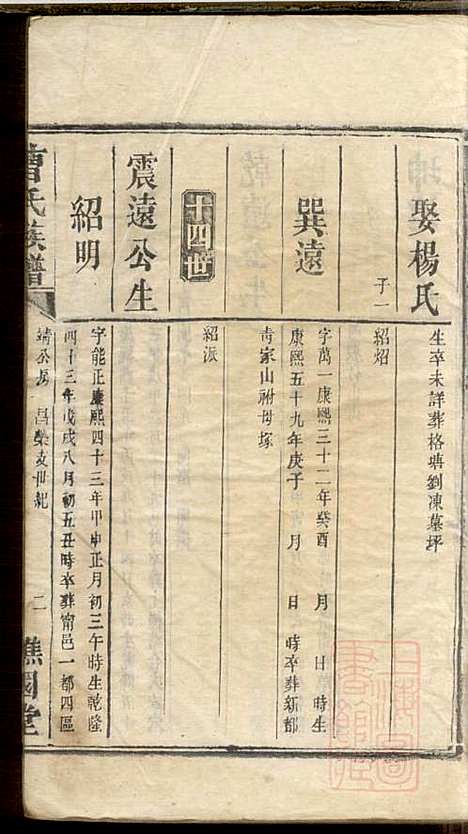 娶楊氏
子一
生卒未詳葬格塘劉凍墓坪
紹炤
巽遠
字萬一康熙三十二年癸酉　月　日　時生
康熙五十九年庚子　月　日　時卒葬新都
青家山祔母塚
紹派
十四世
震遠公生
紹明
字能正康熙四十三年甲申正月初三午時生乾隆
四十三年戊戌八月初五丑時卒葬甯邑一都四區
曹氏族譜
靖公房　昌榮支世紀
二
譙國堂